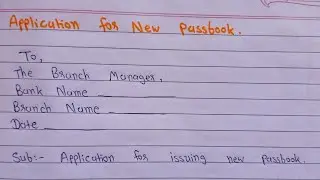 Application for New Passbook.
To,
The Branch Manager,
Bank Name ________
Branch Name ________
Date ________
Sub:- Application for issuing new Passbook.